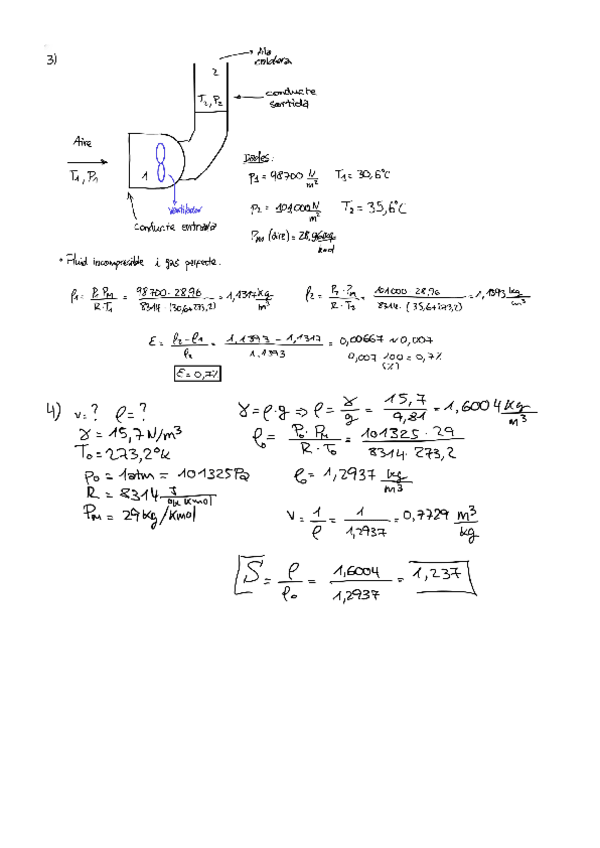 3)
Aire
T₁, P₁
1
2
T₂, P₂
conducte
sortida
ventilador
conducte entrada
Dades:
P₁ = 98700 N/m² T₁ = 30,6°C
P₂ = 101000 N/m² T₂ = 35,6°C
Pm (aire) = 28,96 kg/kmol
• Fluid incompresible i gas perfecte.
ρ₁ = P₁·Pm / R·T₁ = 98700·28,96 / 8314·(30,6+273,2) = 1,1317 kg/m³ ρ₂ = P₂·Pm / R·T₂ = 101000·28,96 / 8314·(35,6+273,2) = 1,1393 kg/m³
ε = ρ₂-ρ₁ / ρ₂ = 1,1393 - 1,1317 / 1,1393 = 0,00667 ≈ 0,007
0,007·100 = 0,7%
(%)
ε = 0,7%
4) v=? ρ=?
γ = 15,7 N/m³
T₀ = 273,2°K
P₀ = 1atm = 101325 Pa
R = 8314 J/°K Kmol
Pm = 29 kg/Kmol
γ = ρ·g ⇒ ρ = γ/g = 15,7/9,81 = 1,6004 kg/m³
ρ₀ = P₀·Pm / R·T₀ = 101325·29 / 8314·273,2
ρ₀ = 1,2937 kg/m³
v = 1/ρ = 1/1,2937 = 0,7729 m³/kg
S = ρ/ρ₀ = 1,6004/1,2937 = 1,237